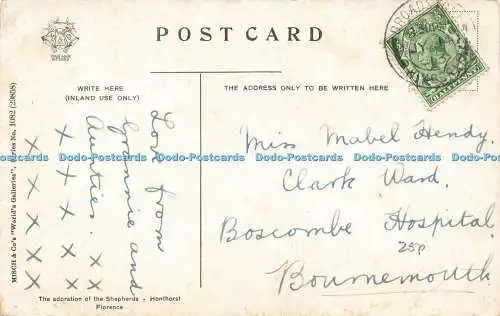 POST CARD
WRITE HERE
(INLAND USE ONLY)
THE ADDRESS ONLY TO BE WRITTEN HERE
Love from
Grannie and
Aunties. x x
x x x x x x
x x x x x
Miss Mabel Hendy.
Clark Ward.
Boscombe Hospital
25p
Bournemouth
The adoration of the Shepherds - Honthorst
Florence
MISCH & Co's "World's Galleries", Series No. 1082 (29858)
Dodo-Postcards Dodo-Postcards Dodo-Postcards Dodo-Postcards Dodo-Postcards Dodo-Postcards